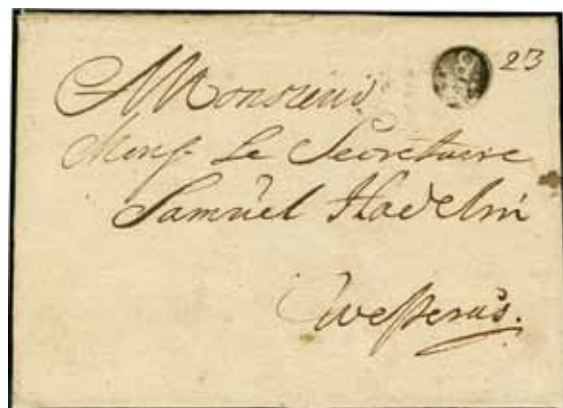 23
Monsieur
Mons. Le Secretaire
Samuel
Westerås.